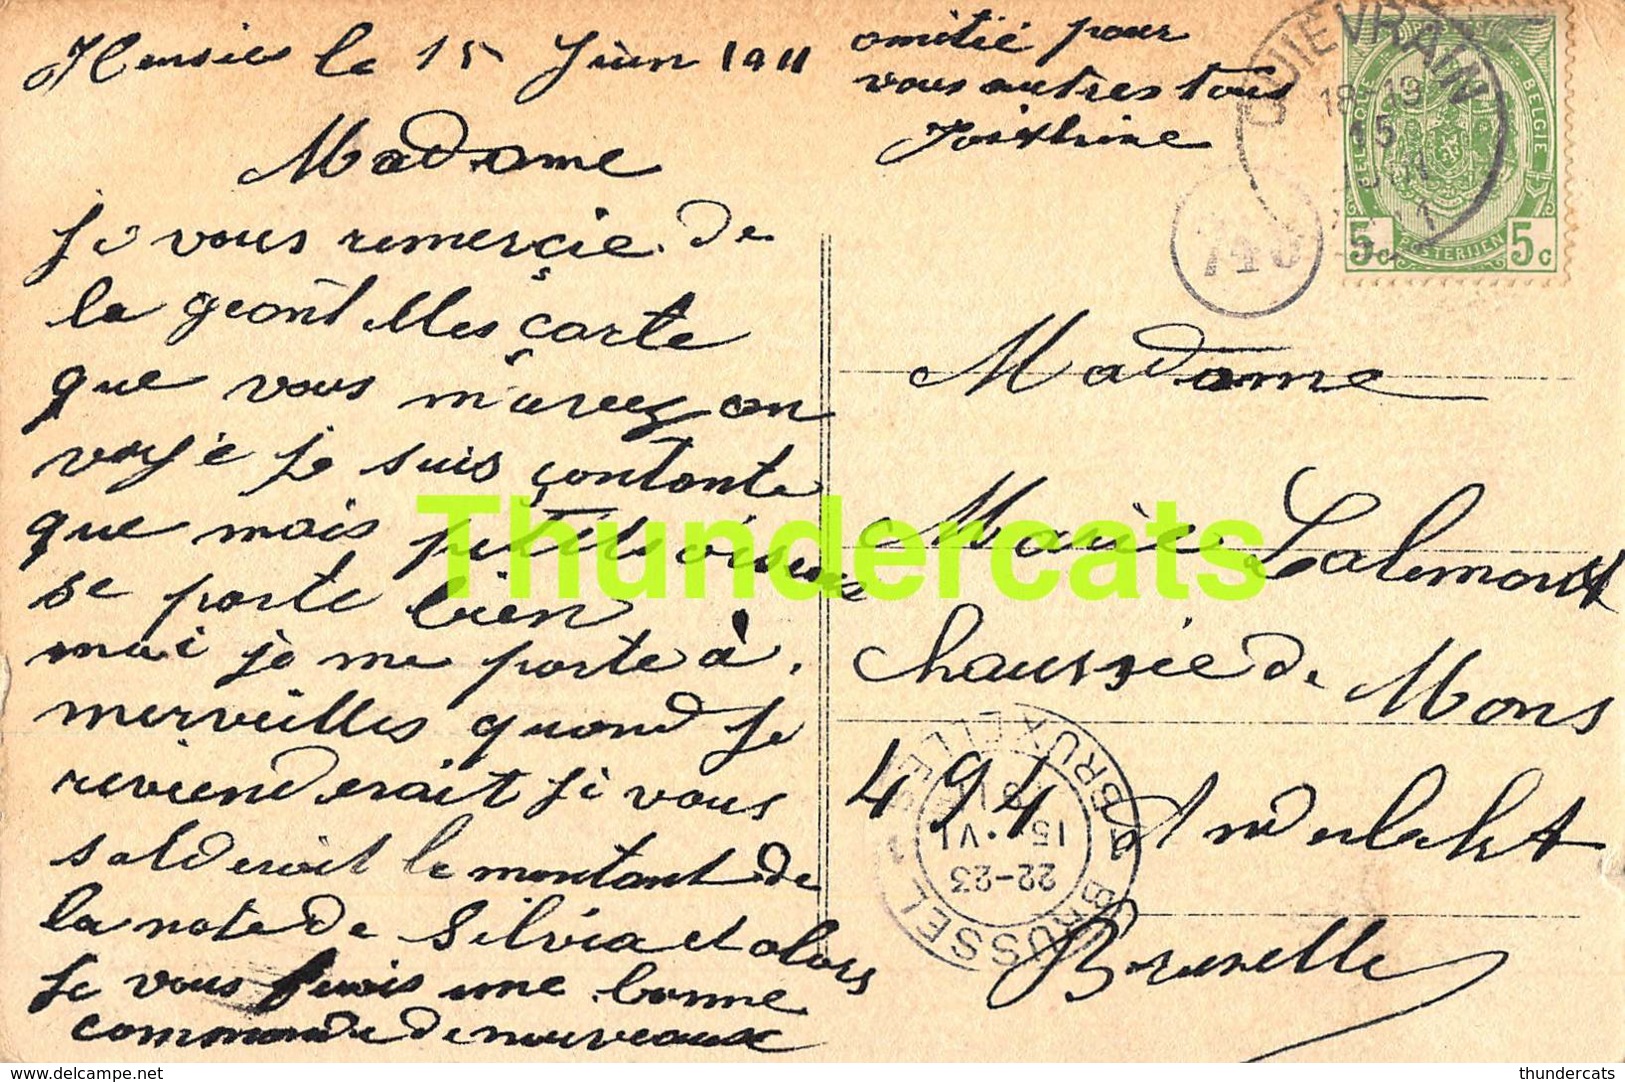 Hensies le 15 Juin 1911
Madame
Je vous remerçie de
la geantilles carte
que vous m'avez an
voyé je suis contante
que mais petitsoiseaux
se porte bien
moi je me porte à
merveilles quand je
revienderait ji vous
solderait le montant de
la note de Silvia et alors
je vous ferais une bonne
commande de nouveaux
amitié pour
vous autres tous
Joséphine
QUIEVRAIN
18-19
15
JUI
BELGIQUE
BELGIE
POSTERIJEN
5c 5c
Madame
Marie Lalemant
Chaussée de Mons
494 Anderlecht
Bruxelle
BRUXELLES 1
1 BRUSSEL
22-23
15.VI
Thundercats
delcampe.net
thundercats